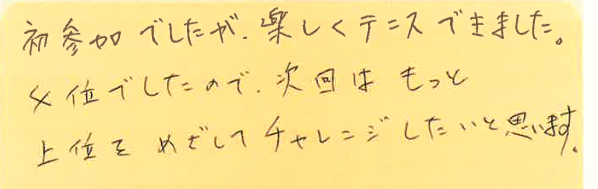 初参加でしたが、楽しくテニスできました。
4位でしたので、次回はもっと
上位をめざしてチャレンジしたいと思います。